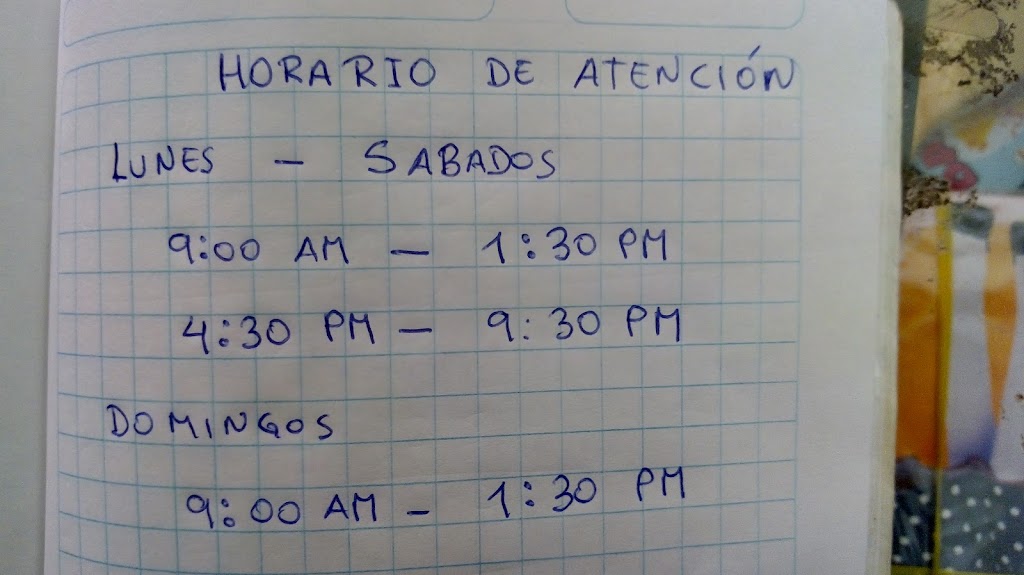 HORARIO DE ATENCIÓN
LUNES - SABADOS
9:00 AM - 1:30 PM
4:30 PM - 9:30 PM
DOMINGOS
9:00 AM - 1:30 PM